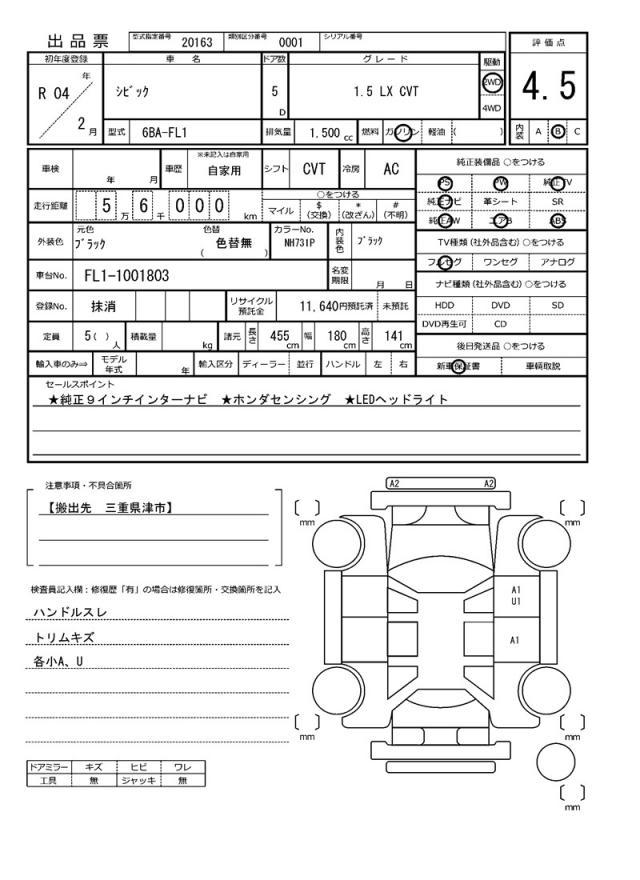 出品票
型式指定番号 20163 類別区分番号 0001 シリアル番号
評価点
4.5
内装 A B C
初年度登録 車名 ドア数 グレード 駆動
R 04 年 2 月
シビック 5 D 1.5 LX CVT 2WD 4WD
型式 6BA-FL1 排気量 1.500 cc 燃料 ガソリン 軽油 ( )
車検 年 月 車歴 ※未記入は自家用 自家用 シフト CVT 冷房 AC
走行距離 5 万 6 千 0 0 0 km ○をつける
マイル $ (交換) * (改ざん) # (不明)
外装色 元色 ブラック 色替 色替無 ( ) カラーNo. NH731P 内装色 ブラック
車台No. FL1-1001803 名変期限 月 日
登録No. 抹消 リサイクル預託金 11,640円預託済 未預託
定員 5( ) 人 積載量 kg 諸元 長さ 455 cm 幅 180 cm 高さ 141 cm
輸入車のみ⇒ モデル年式 年 輸入区分 ディーラー 並行 ハンドル 左 右
純正装備品 ○をつける
PS PW 純正TV
純正ナビ 革シート SR
純正AW エアB ABS
TV種類 (社外品含む) ○をつける
フルセグ ワンセグ アナログ
ナビ種類 (社外品含む) ○をつける
HDD DVD SD
DVD再生可 CD
後日発送品 ○をつける
新車保証書 車輌取説
セールスポイント
★純正９インチインターナビ ★ホンダセンシング ★LEDヘッドライト
注意事項・不具合箇所
【搬出先 三重県津市】
検査員記入欄：修復歴「有」の場合は修復箇所・交換箇所を記入
ハンドルスレ
トリムキズ
各小A、U
ドアミラー キズ ヒビ ワレ
工具 無 ジャッキ 無
A2 A2
[ ] mm
[ ] mm
A1
U1
A1
[ ] mm
[ ] mm
[ ] mm